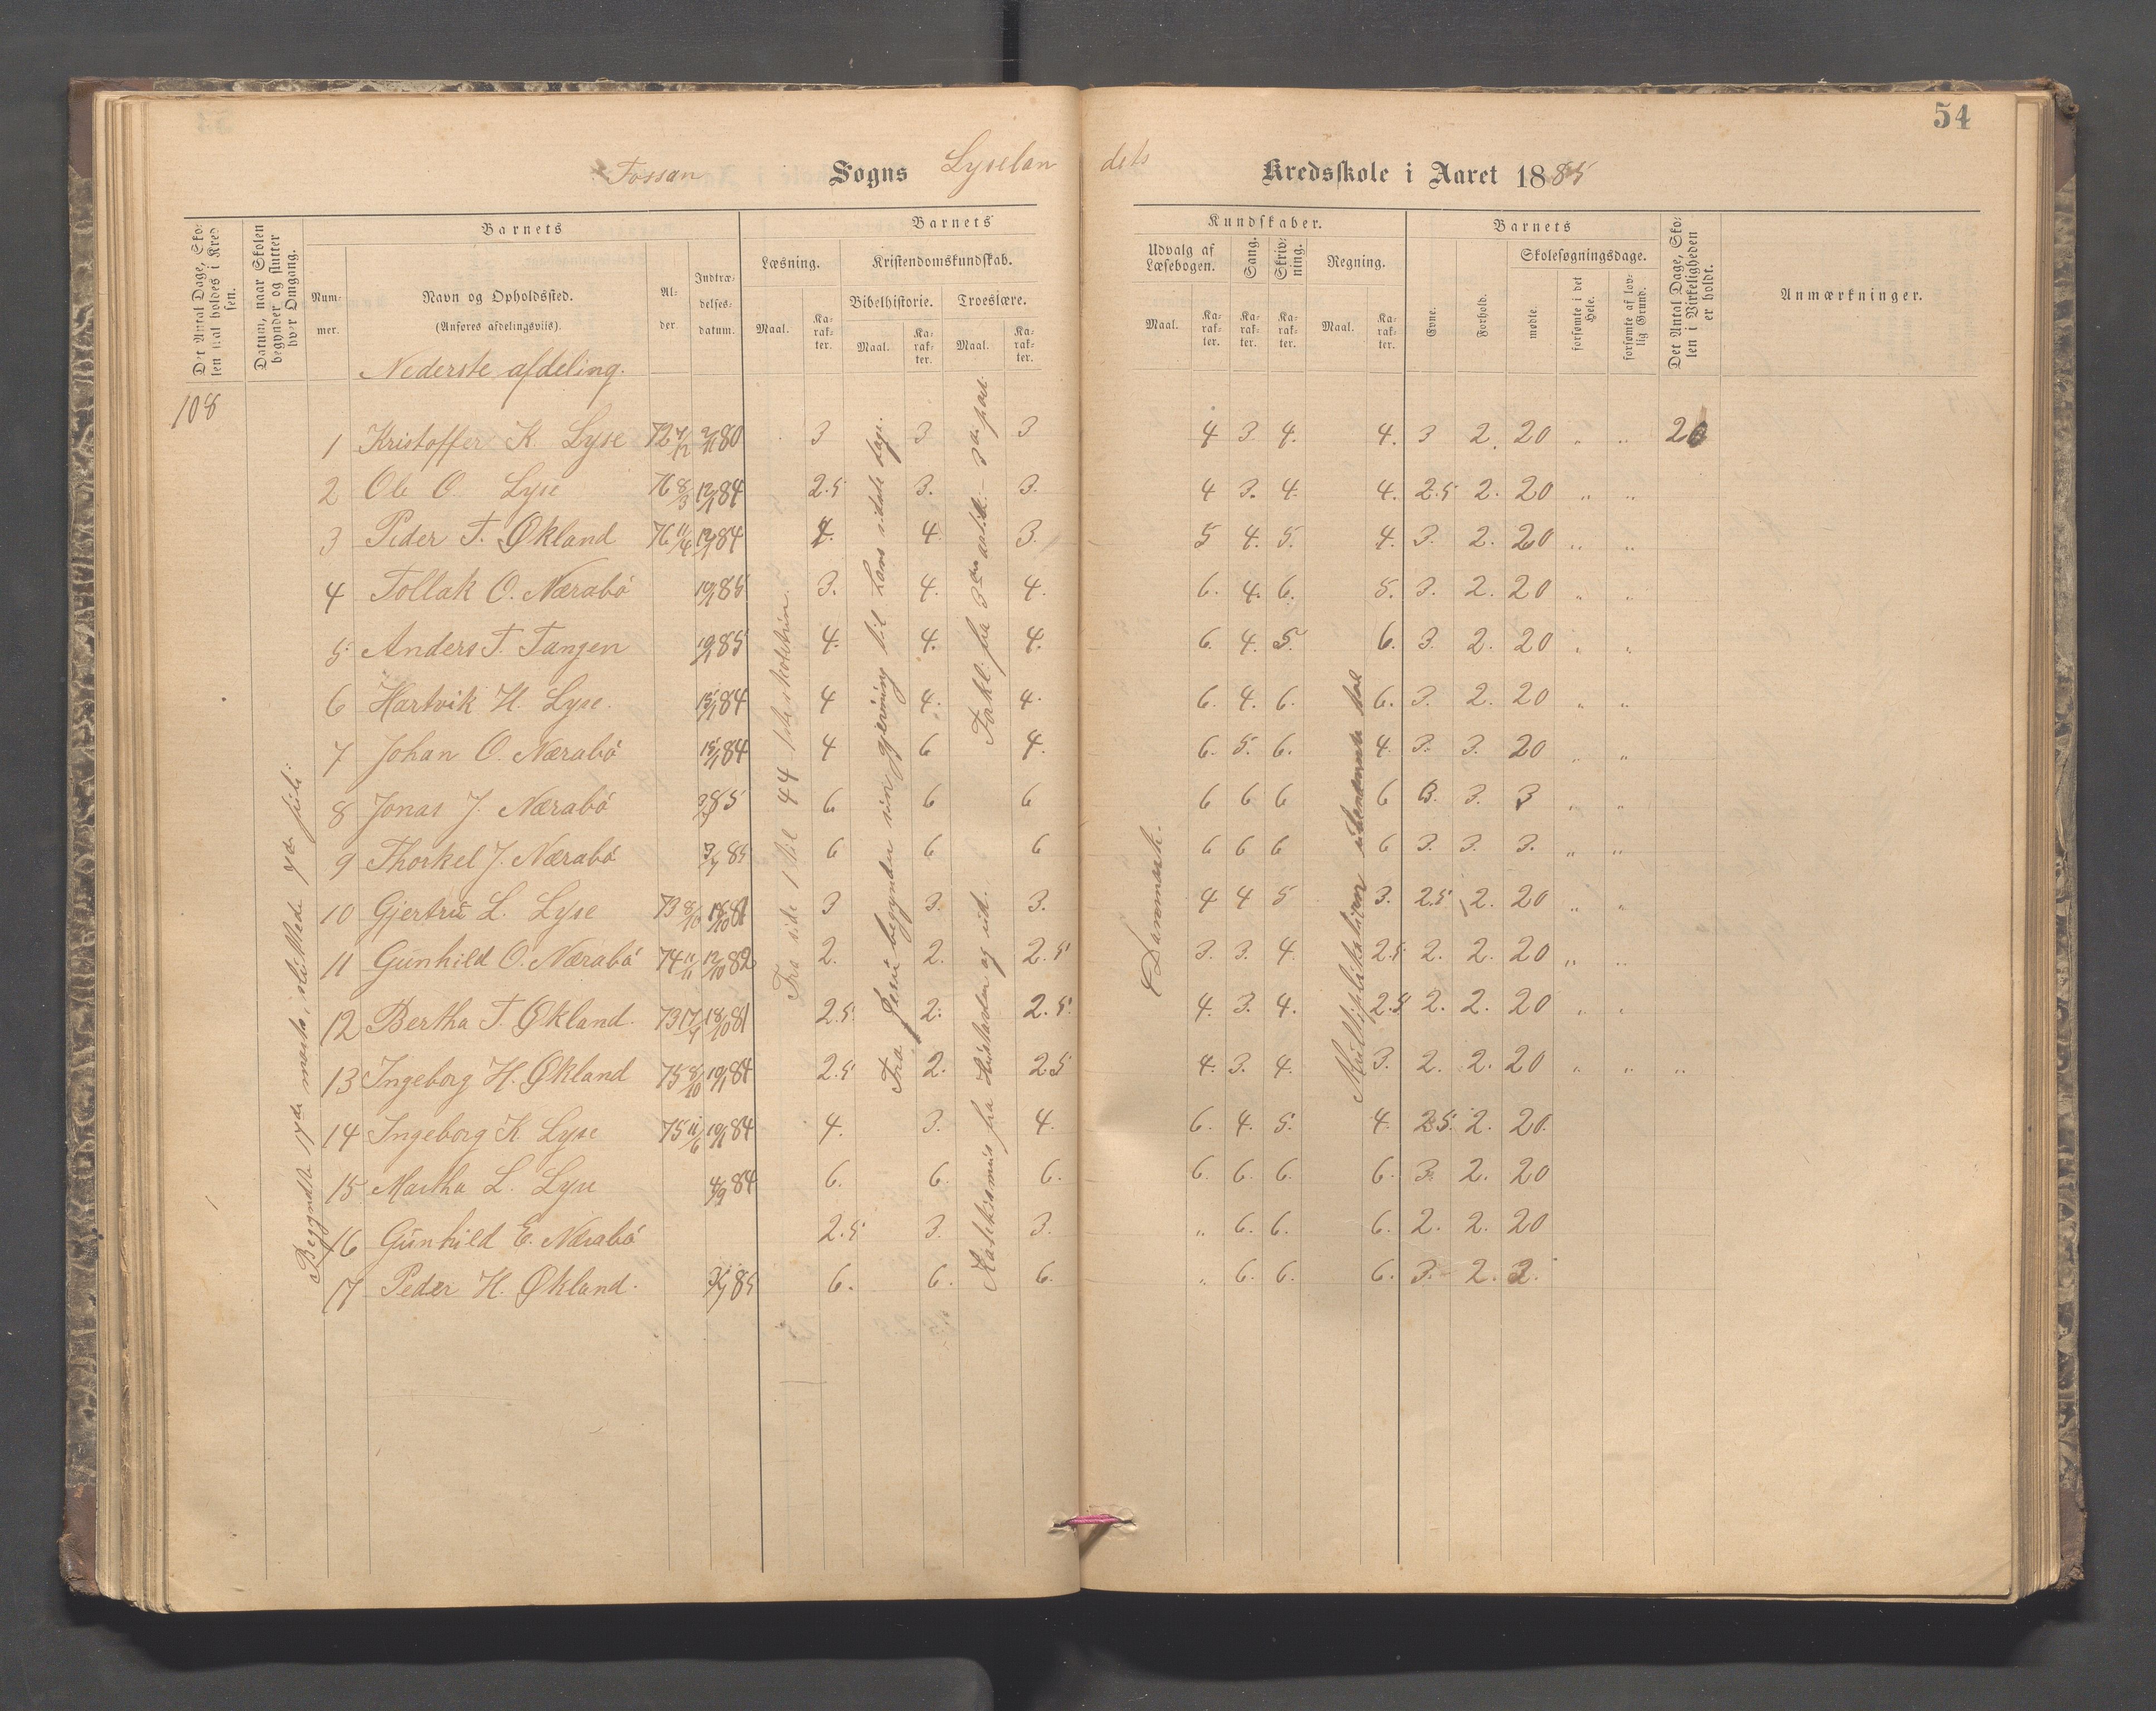 54
Fossan Sogns Lyselandets Kredsskole i Aaret 1885
Det Antal Dage, Skolen skal holdes i Kredsen.
Datum, naar Skolen begynder og slutter hver Omgang.
Barnets
Nummer.
Navn og Opholdssted.
(Anføres afdelingsviis).
Alder
Indtrædelsesdatum.
Barnets Kundskaber.
Læsning.
Maal.
Karakter.
Kristendomskundskab.
Bibelhistorie.
Maal.
Karakter.
Troeslære.
Maal.
Karakter.
Udvalg af Læsebogen.
Maal.
Karakter.
Sang.
Karakter.
Skrivning.
Karakter.
Regning.
Maal.
Karakter.
Barnets
Evne.
Forhold.
Skolesøgningsdage.
mødte.
forsømte i det Hele.
forsømte af lovlig Grund.
Det Antal Dage, Skolen i Virkeligheden er holdt.
Anmærkninger.
Nederste afdeling.
108
1 Kristoffer K. Lyse 72 80 3 3 3 4 3 4. 4. 3 2. 20 " " 20
2 Ole O. Lyse 76 8/3 84 2.5 3. 3. 4 3. 4. 4. 2.5 2. 20 " "
3 Peder T. Økland 76 11/4 84 4. 4. 3. 5 4. 5. 4. 3. 2. 20 " "
4 Tollak O. Nærabö 85 3. 4. 4. 6. 4. 6. 5. 3. 2. 20 " "
5. Anders T. Tangen 85 4. 4. 4. 6. 4. 5. 6. 3. 2. 20 " "
6 Hartvik H. Lyse. 84 4 4. 4. 6. 4. 6. 6. 3. 2. 20 " "
7 Johan O. Nærabö 84 4 6 4. 6. 5. 6. 4. 3. 3. 20 " "
8 Jonas J. Nærabö 85 6 6 6 6 6 6 6 3. 3. 3 " "
9 Thorkel J. Nærabö 85 6 6 6 6 6 6 6 3. 3. 3. " "
10 Gjertru L. Lyse 73 8/10 81 3 3. 3. 4 4 5 3. 2.5 2. 20 " "
11 Gunhild O. Nærabö 74 11/11 12/10 82 2. 2. 2.5 3. 3. 4. 2.5 2. 2. 20 " "
12 Bertha T. Økland. 73 17/4 18/10 81 2.5 2. 2.5. 4. 3. 4. 2.5 2. 2. 20 " "
13 Ingeborg H. Økland 75 8/10 84 2.5 2. 2.5 4. 3. 4. 3. 2. 2. 20 " " "
14 Ingeborg K. Lyse 75 11/6 84 4. 3. 4. 6. 4. 5. 4. 2.5. 2. 20.
15 Martha L. Lyse 4/9 84 6. 6. 6. 6. 6. 6. 6. 3. 2. 20
16 Gunhild E. Nærabö 2.5 3. 3. " 6. 6. 6. 2. 2. 20
17 Peder H. Økland. 85 6. 6. 6. " 6. 6. 6. 3. 2. 3.
Begyndte 17de marts, sluttede 9de juli.
Fra side 1 til 44 1ste skoletrin.
Fra Jesu begynder sin gjerning til Hans sidste dage.
Katekismus fra Hustavlen og ud. Forkl. fra 3die artik. - 3die part.
Danmark.
Multiplikation ubenævnte tal